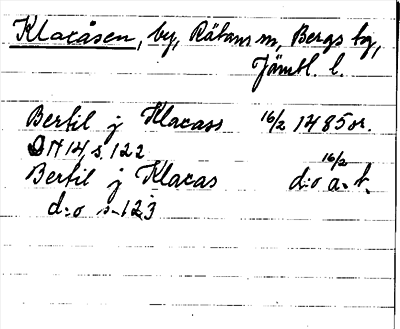 Klacåsen, by, Rätans sn, Bergs tg,
Jämtl. l.
Bertil j Klacass 16/2 1485 or.
DN 14 s. 122
Bertil j Klacas 16/2 d:o a. t.
d:o s. 123